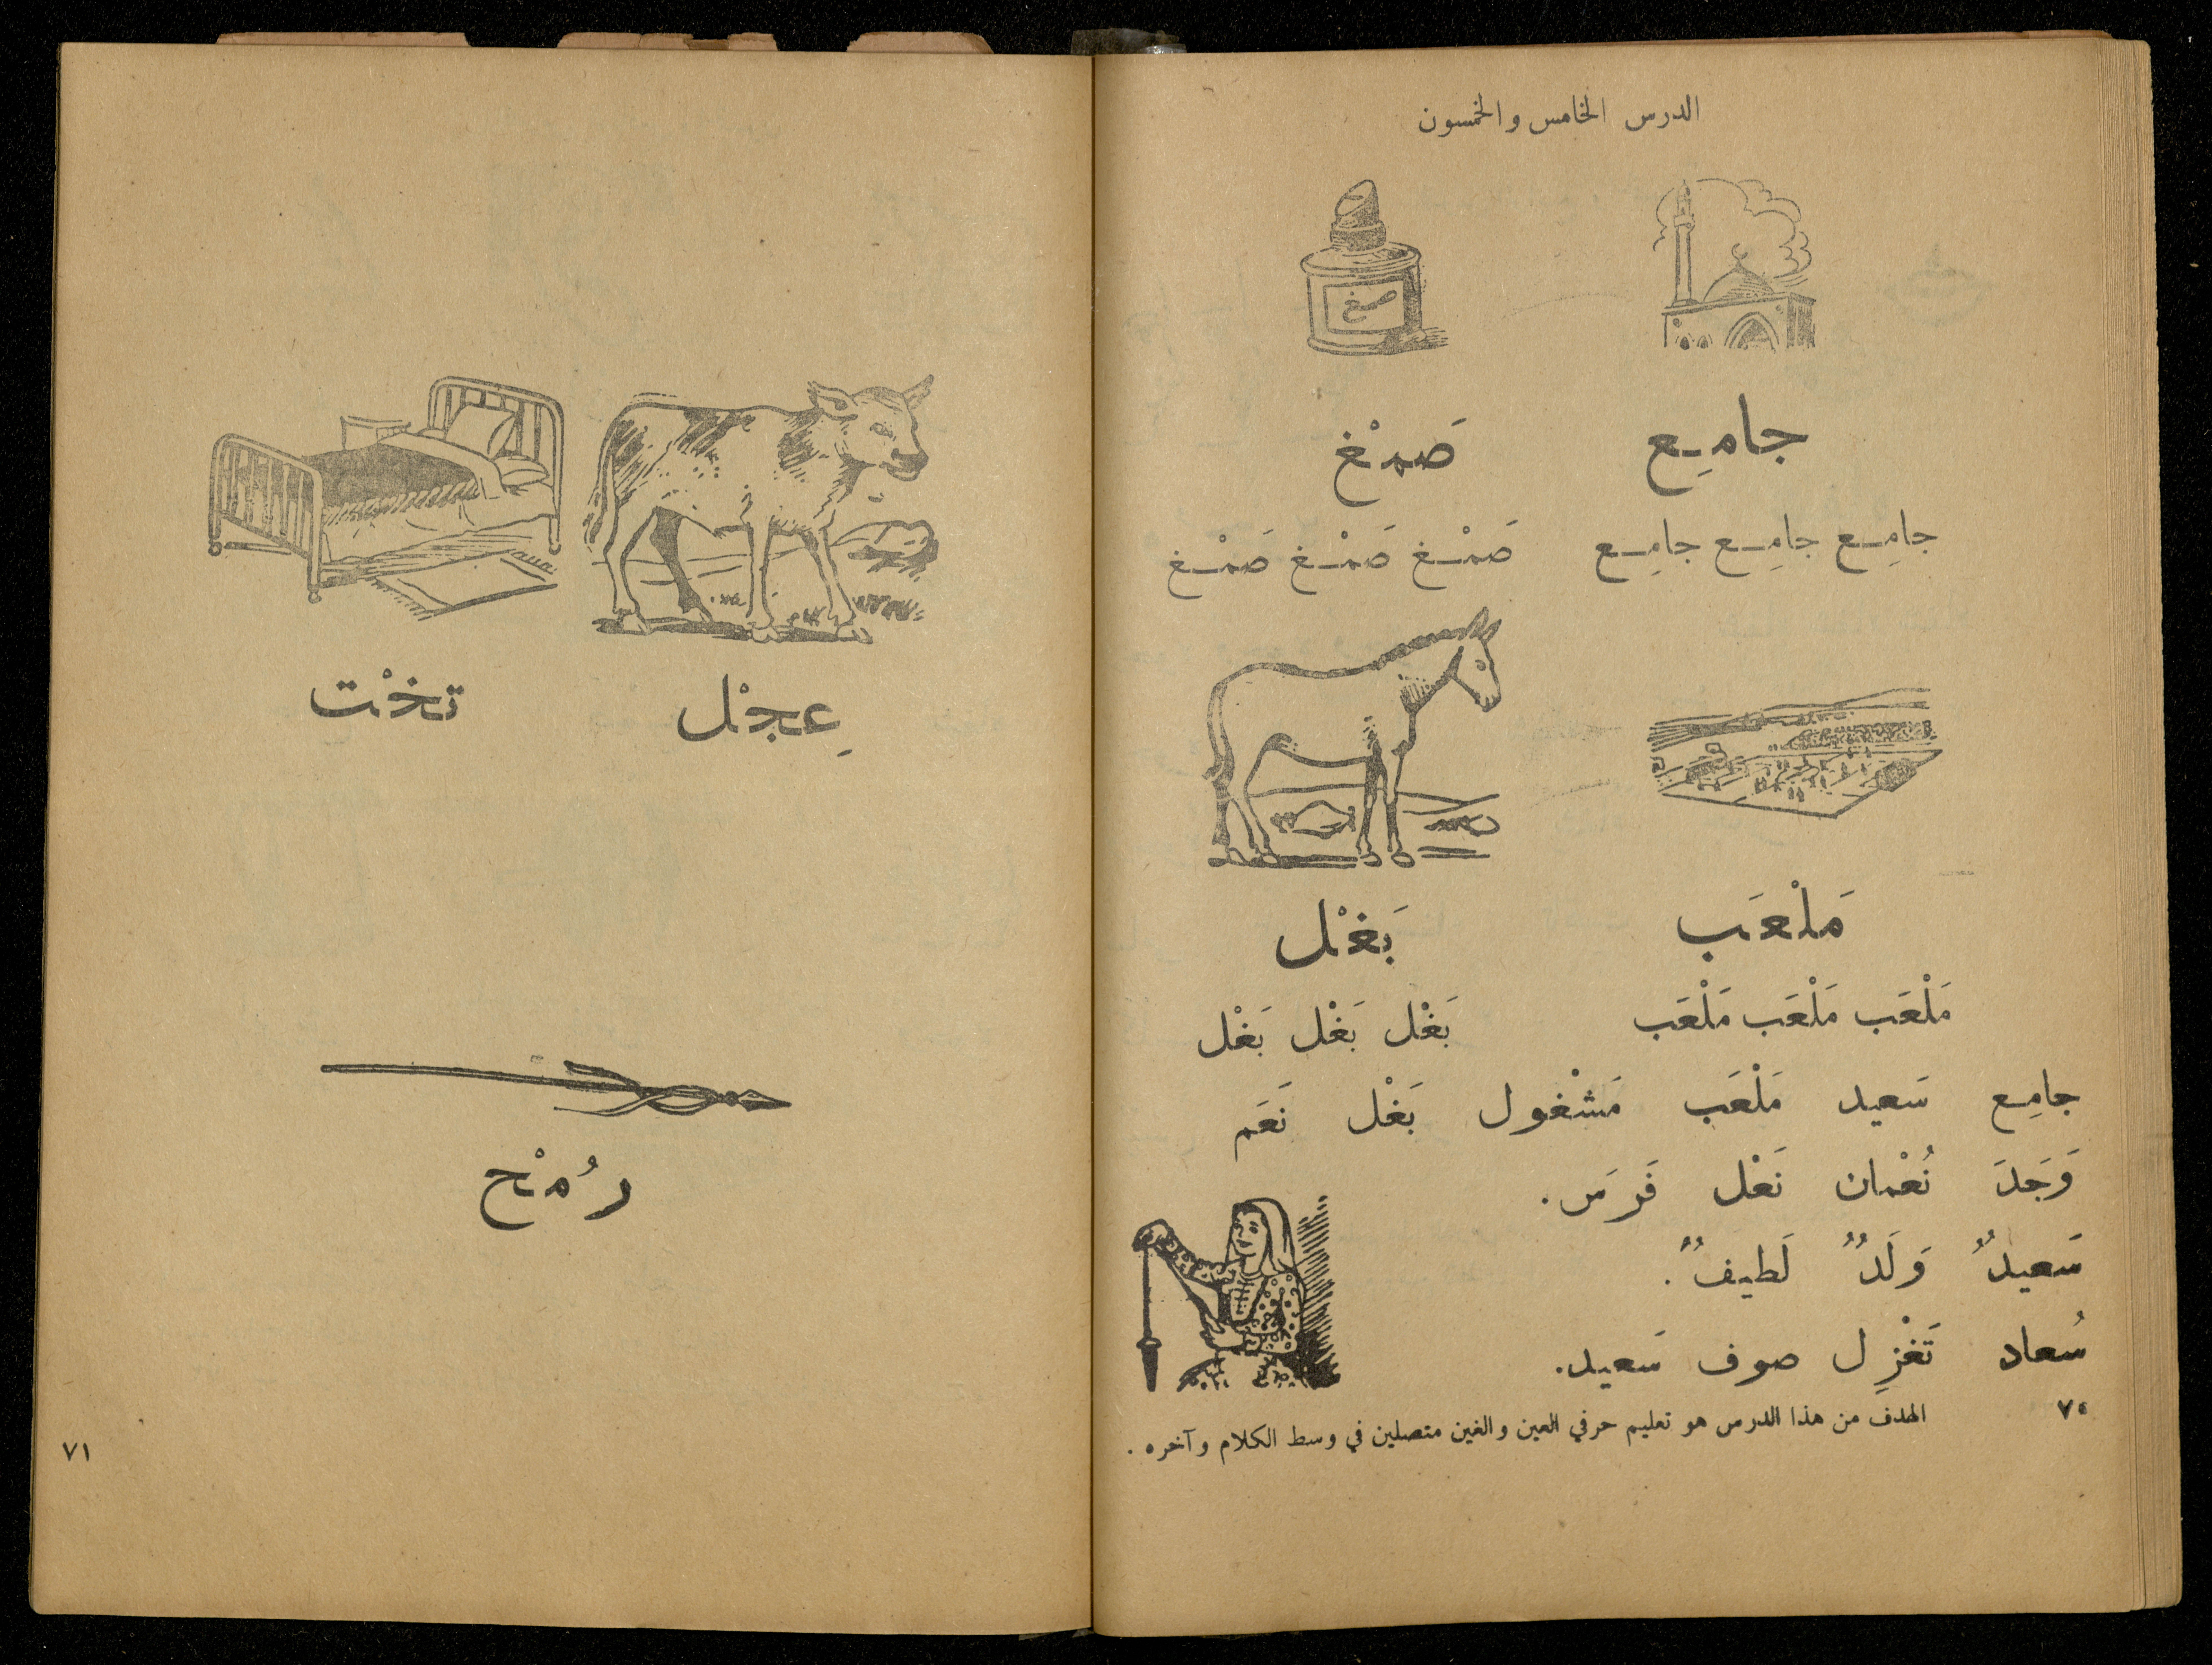 الدرس الخامس والخمسون
صمغ
جامِع صَمْغ
جامِع جامِع جامِع صَمْغ صَمْغ صَمْغ
مَلْعَب بَغْل
مَلْعَب مَلْعَب مَلْعَب بَغْل بَغْل بَغْل
جامِع سَعيد مَلْعَب مَشْغول بَغْل نَعَم
وَجَدَ نُعْمان نَعْل فَرَس.
سَعيدٌ وَلَدٌ لَطيفٌ.
سُعاد تَغْزِل صوف سَعيد.
٧٤
الهدف من هذا الدرس هو تعليم حرفي العين والغين متصلين في وسط الكلام وآخره.
عِجْل تخْت
رُمْح
٧١